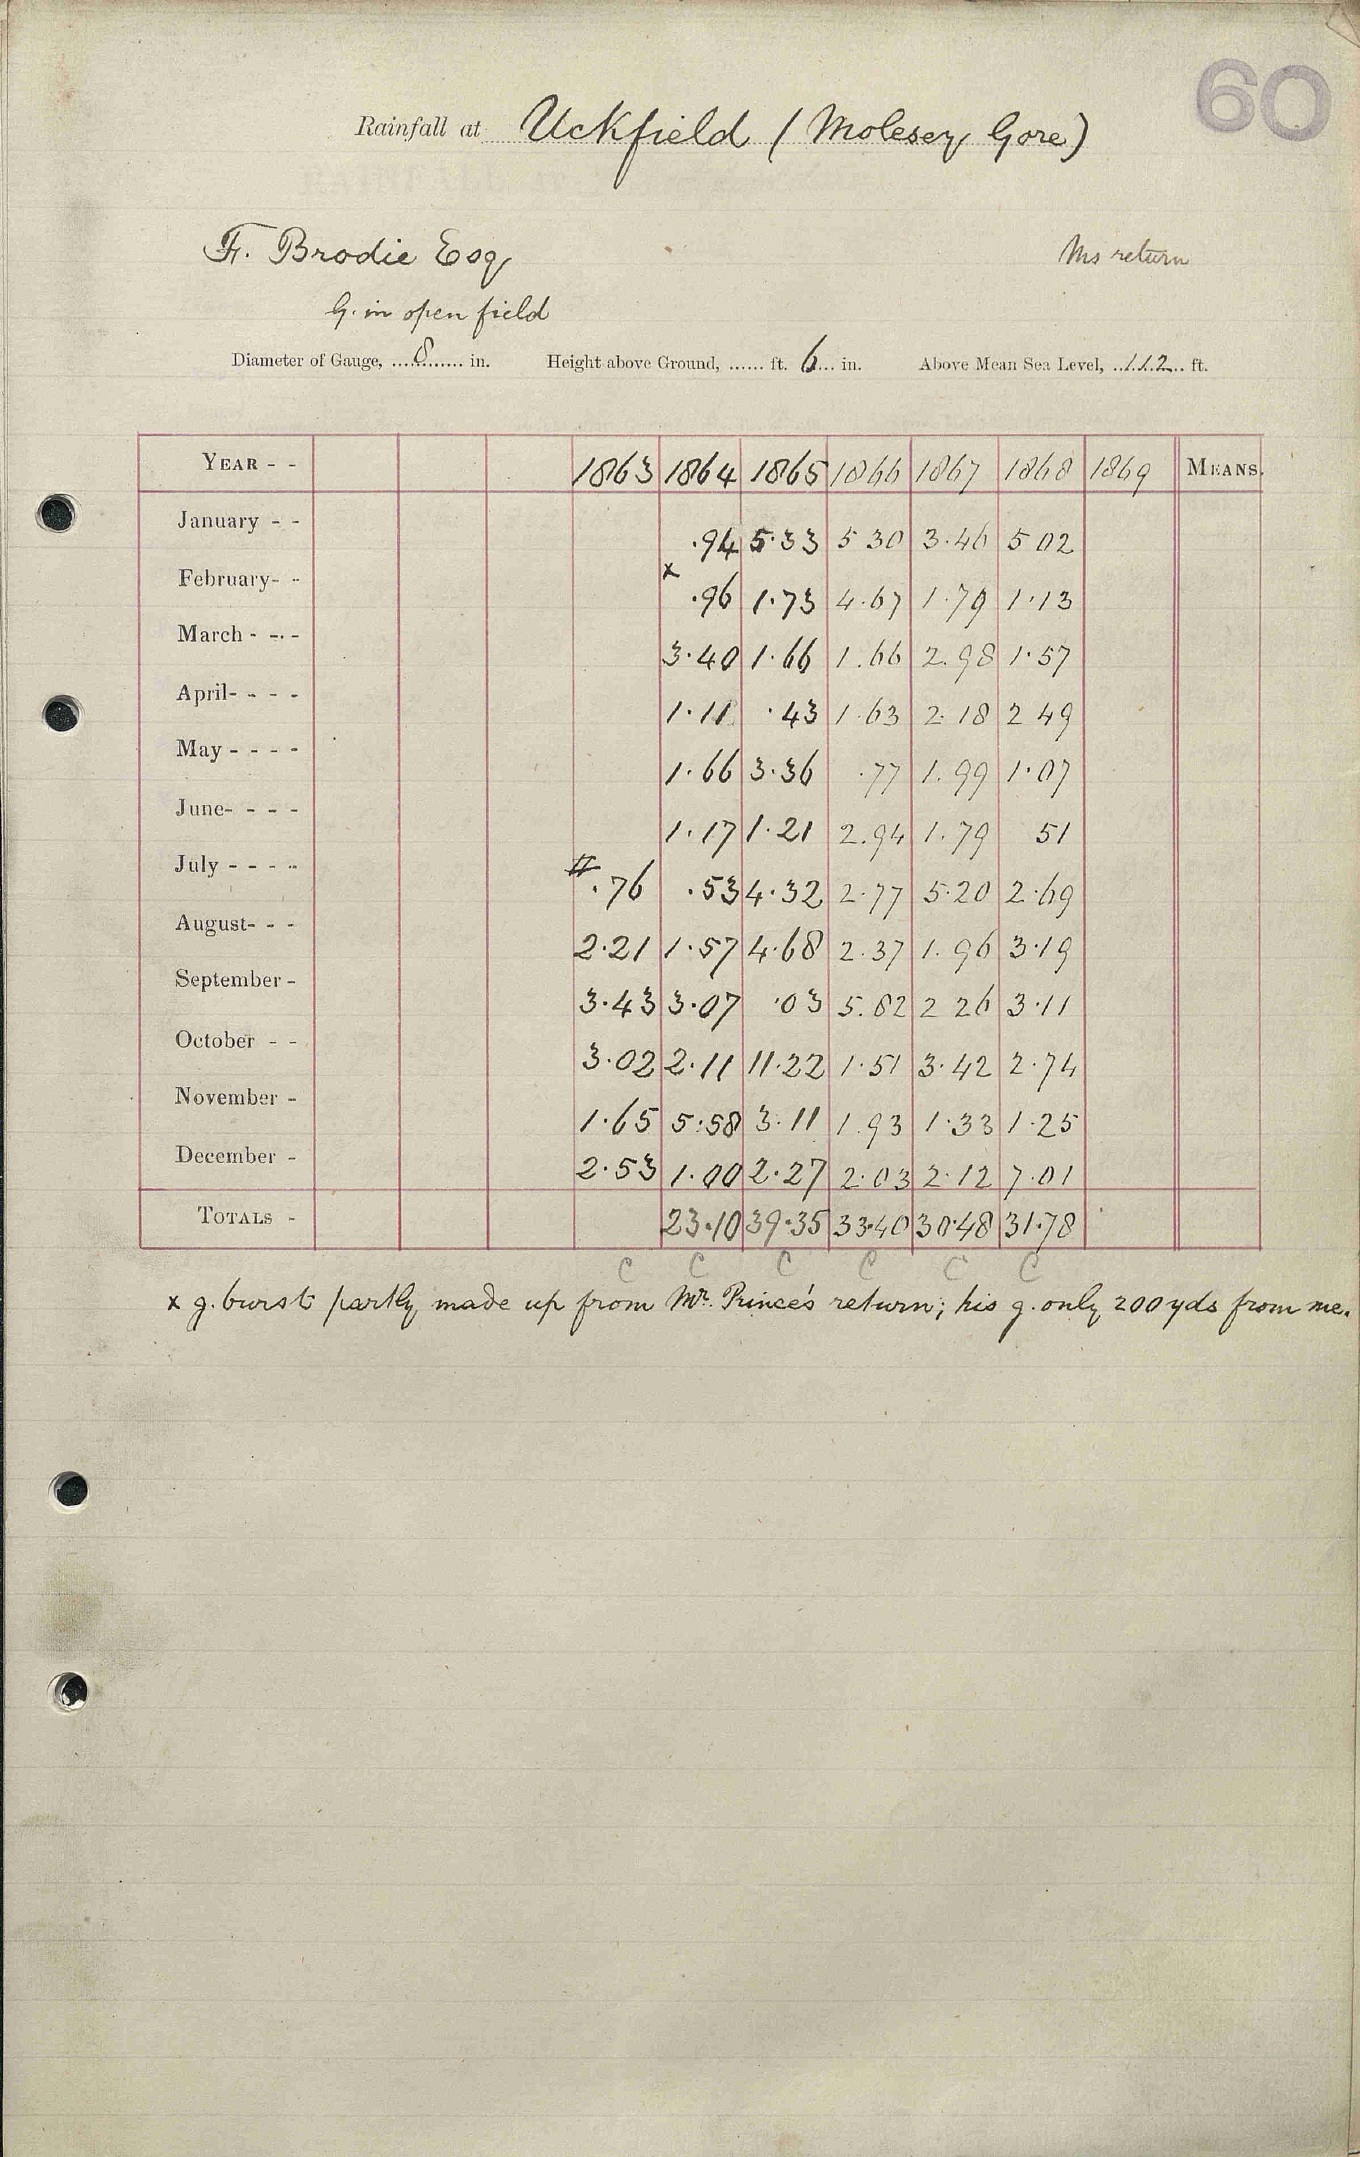 60
Rainfall at Uckfield (Molesey Gore)
F. Brodie Esq
Ms return
G. in open field
Diameter of Gauge, ...8... in. Height above Ground, ...... ft. 6... in. Above Mean Sea Level, ..112.. ft.
YEAR - - 1863 1864 1865 1866 1867 1868 1869 MEANS.
January - - .94 5.33 5 30 3.46 5 02
February- - x .96 1.73 4.67 1.79 1.13
March - - - 3.40 1.66 1.66 2.98 1.57
April- - - - 1.11 .43 1.63 2.18 2 49
May - - - - 1.66 3.36 .77 1.99 1.07
June- - - - 1.17 1.21 2.94 1.79 51
July - - - - # .76 .53 4.32 2.77 5.20 2.69
August- - - 2.21 1.57 4.68 2.37 1.96 3.19
September - 3.43 3.07 .03 5.82 2 26 3.11
October - - 3.02 2.11 11.22 1.51 3.42 2.74
November - 1.65 5.58 3.11 1.93 1.33 1.25
December - 2.53 1.00 2.27 2.03 2.12 7.01
TOTALS - 23.10 39.35 33.40 30.48 31.78
C C C C C C
x g. burst partly made up from Mr. Prince's return; his g. only 200 yds from me.